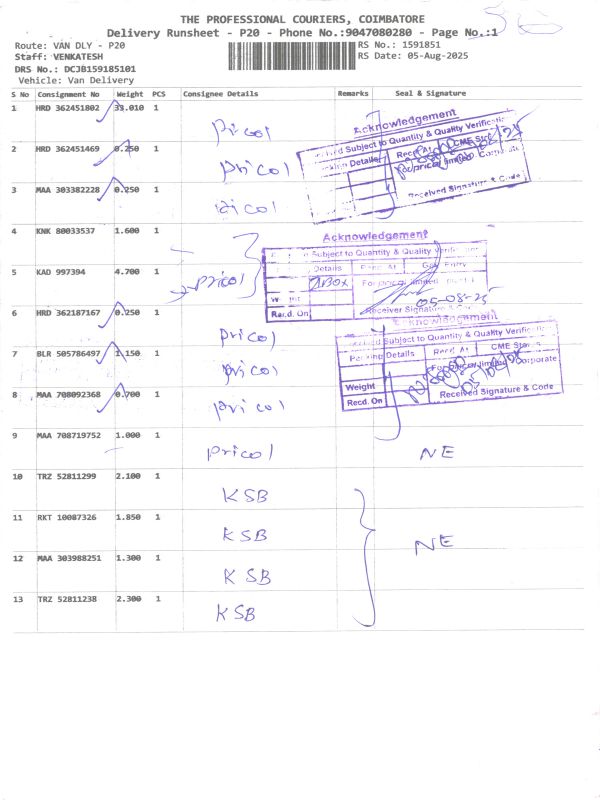 THE PROFESSIONAL COURIERS, COIMBATORE
Delivery Runsheet - P20 - Phone No.:9047080280 - Page No.:1
Route: VAN DLY - P20
RS No.: 1591851
Staff: VENKATESH
RS Date: 05-Aug-2025
DRS No.: DCJB159185101
Vehicle: Van Delivery
S No Consignment No Weight PCS Consignee Details Remarks Seal & Signature
1 HRD 362451802 33.010 1 Pricol
2 HRD 362451469 0.250 1 Pricol
3 MAA 303382228 0.250 1 Pricol
Acknowledgement
Subject to Quantity & Quality
Details Recd. At CME
Received Signature & Code
4 KNK 80033537 1.600 1
5 KAD 997394 4.700 1 Pricol
Acknowledgement
Subject to Quantity & Quality
Details Recd. At
BOX
05-08-25
Recd. On Receiver
6 HRD 362187167 0.250 1 Pricol
7 BLR 505786497 1.150 1 Pricol
8 MAA 708092368 0.700 1 Pricol
Acknowledgement
Subject to Quantity & Quality
Details Recd. At CME
Corporate
Weight
Recd. On Received Signature & Code
9 MAA 708719752 1.000 1 Pricol NE
10 TRZ 52811299 2.100 1 KSB
11 RKT 10087326 1.850 1 KSB
NE
12 MAA 303988251 1.300 1 KSB
13 TRZ 52811238 2.300 1 KSB